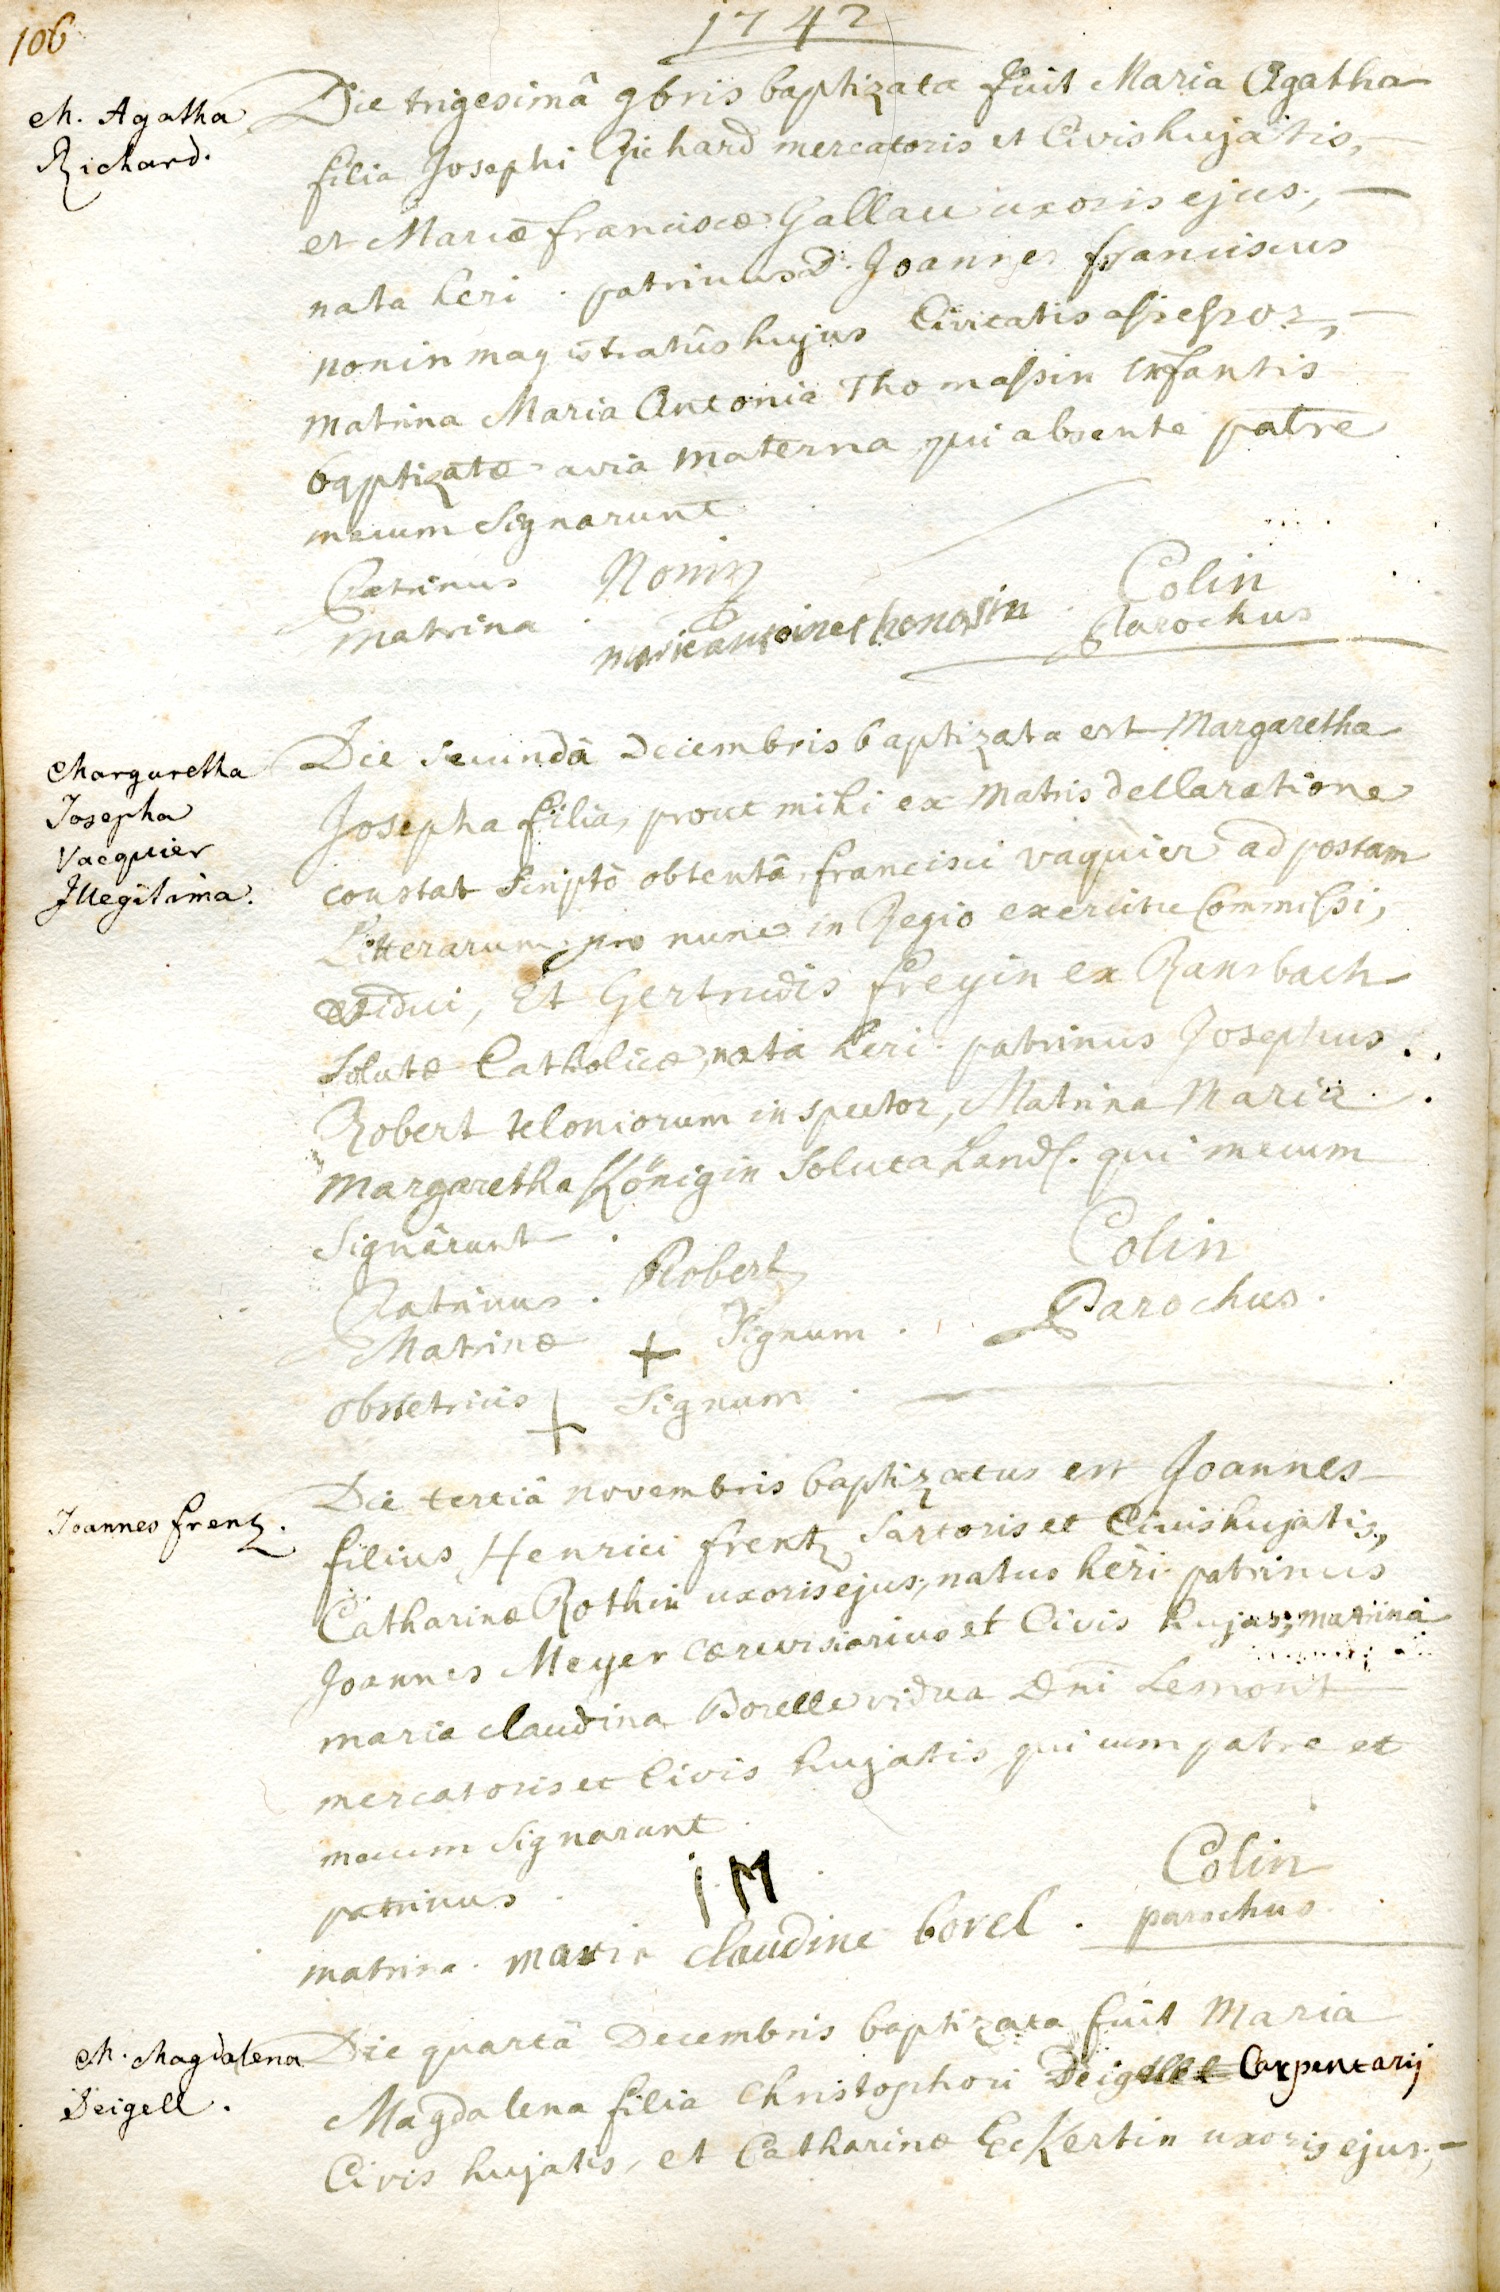 106
1742
M. Agatha
Richard.
Die trigesimâ 9bris baptizata fuit Maria Agatha
filia Josephi Richard mercatoris et Civis hujatis,
et Mariæ franciscæ Gallau uxoris ejus,
nata heri. patrinus D. Joannes franciscus
nonin magistratûs hujus Civitatis assessor,
matrina Maria Antonia Thomassin infantis
baptizatæ avia materna qui absente patre
mecum signarunt
Patrinus Nonin
matrina marie antoine thomasin
Colin
Parochus
Margaretha
Josepha
Vacquier
Illegitima.
Die secundâ Decembris baptizata est Margaretha
Josepha filia, prout mihi ex matris declaratione
constat scriptô obtentâ, francisci vaquier ad postam
Litterarum pro nunc in Regio exercitu Commissi,
vidui, Et Gertrudis freyin ex Ransbach
solutæ Catholicæ, nata heri. patrinus Josephus
Robert teloniorum inspector, Matrina Maria
Margaretha Königin soluta Land. qui mecum
signârunt
Patrinus. Robert
Matrinæ + Signum.
obstetricis + Signum.
Colin
Parochus.
Joannes frentz.
Die tertiâ novembris baptizatus est Joannes
filius Henrici frentz sartoris et Civis hujatis,
Catharinæ Rothin uxoris ejus, natus heri patrinus
Joannes Meyer cærevisiarius et Civis hujas, matrina
maria claudina Borelle vidua Dni Lemont
mercatoris et Civis hujatis qui cum patre et
mecum signarunt
patrinus. i M
matrina. marie claudine borel.
Colin
parochus
M. Magdalena
Deigell.
Die quartâ Decembris baptizata fuit Maria
Magdalena filia Christophori Deigell Carpentarij
Civis hujatis, et Catharinæ Eckertin uxoris ejus,